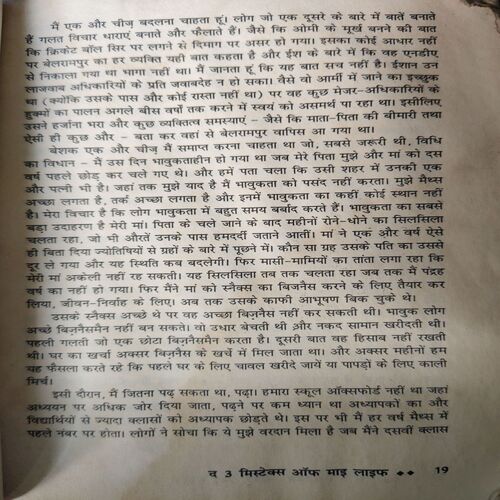 मैं एक और चीज़ बदलना चाहता हूं। लोग जो एक दूसरे के बारे में बातें बनाते
हैं गलत विचार धाराएं बनाते और फैलाते हैं। जैसे कि ओमी के मूर्ख बनने की बात
कि क्रिकेट बॉल सिर पर लगने से दिमाग पर असर हो गया। इसका कोई आधार नहीं
पर बेलरामपुर का हर व्यक्ति यही बात कहता है और ईश के बारे में कि वह एनडीए
से निकाला गया था भागा नहीं था। मैं जानता हूं कि यह बात सच नहीं है। ईशान उन
लाजवाब अधिकारियों के प्रति जवाबदेह न हो सका। वैसे वो आर्मी में जाने का इच्छुक
था (क्योंकि उसके पास और कोई रास्ता नहीं था) पर वह कुछ मेजर-अधिकारियों के
हुक्मों का पालन अगले बीस वर्षों तक करने में स्वयं को असमर्थ पा रहा था। इसीलिए
उसने हर्जाना भरा और कुछ व्यक्तित्व समस्याएं - जैसे कि माता-पिता की बीमारी तथा
ऐसी ही कुछ और - बता कर वहां से बेलरामपुर वापिस आ गया था।
बेशक एक और चीज़ मैं समाप्त करना चाहता था जो, सबसे जरूरी थी, विधि
का विधान - मैं उस दिन भावुकताहीन हो गया था जब मेरे पिता मुझे और मां को दस
वर्ष पहले छोड़ कर चले गए थे। और हमें पता चला कि उसी शहर में उनकी एक
और पत्नी भी है। जहां तक मुझे याद है मैं भावुकता को पसंद नहीं करता। मुझे मैथ्स
अच्छा लगता है, तर्क अच्छा लगता है और इनमें भावुकता का कहीं कोई स्थान नहीं
है। मेरा विचार है कि लोग भावुकता में बहुत समय बर्बाद करते हैं। भावुकता का सबसे
बड़ा उदाहरण है मेरी मां। पिता के चले जाने के बाद महीनों रोने-धोने का सिलसिला
चलता रहा, जो भी औरतें उनके पास हमदर्दी जताने आतीं। मां ने एक और वर्ष ऐसे
ही बिता दिया ज्योतिषियों से ग्रहों के बारे में पूछने में। कौन सा ग्रह उसके पति का उससे
दूर ले गया और यह स्थिति कब बदलेगी। फिर मासी-मामियों का तांता लगा रहा कि
मेरी मां अकेली नहीं रह सकती। यह सिलसिला तब तक चलता रहा जब तक मैं पंद्रह
वर्ष का नहीं हो गया। फिर मैंने मां को स्नैक्स का बिजनैस करने के लिए तैयार कर
लिया, जीवन-निर्वाह के लिए। अब तक उसके काफी आभूषण बिक चुके थे।
उसके स्नैक्स अच्छे थे पर वह अच्छा बिज़नैस नहीं कर सकती थी। भावुक लोग
अच्छे बिज़नैसमैन नहीं बन सकते। वो उधार बेचती थी और नकद सामान खरीदती थी।
पहली गलती जो एक छोटा बिज़नैसमैन करता है। दूसरी बात वह हिसाब नहीं रखती
थी। घर का खर्चा अक्सर बिज़नैस के खर्चे में मिल जाता था। और अक्सर महीनों हम
यह फैसला करते रहे कि पहले घर के लिए चावल खरीदे जायें या पापड़ों के लिए काली
मिर्च।
इसी दौरान, मैं जितना पढ़ सकता था, पढ़ा। हमारा स्कूल ऑक्सफोर्ड नहीं था जहां
अध्ययन पर अधिक जोर दिया जाता, पढ़ने पर कम ध्यान था अध्यापकों का और
विद्यार्थियों से ज्यादा क्लासों को अध्यापक छोड़ते थे। इस पर भी मैं हर वर्ष मैथ्स में
पहले नंबर पर होता। लोगों ने सोचा कि ये मुझे वरदान मिला है जब मैंने दसवीं क्लास
द 3 मिस्टेक्स ऑफ माइ लाइफ ◆◆ 19